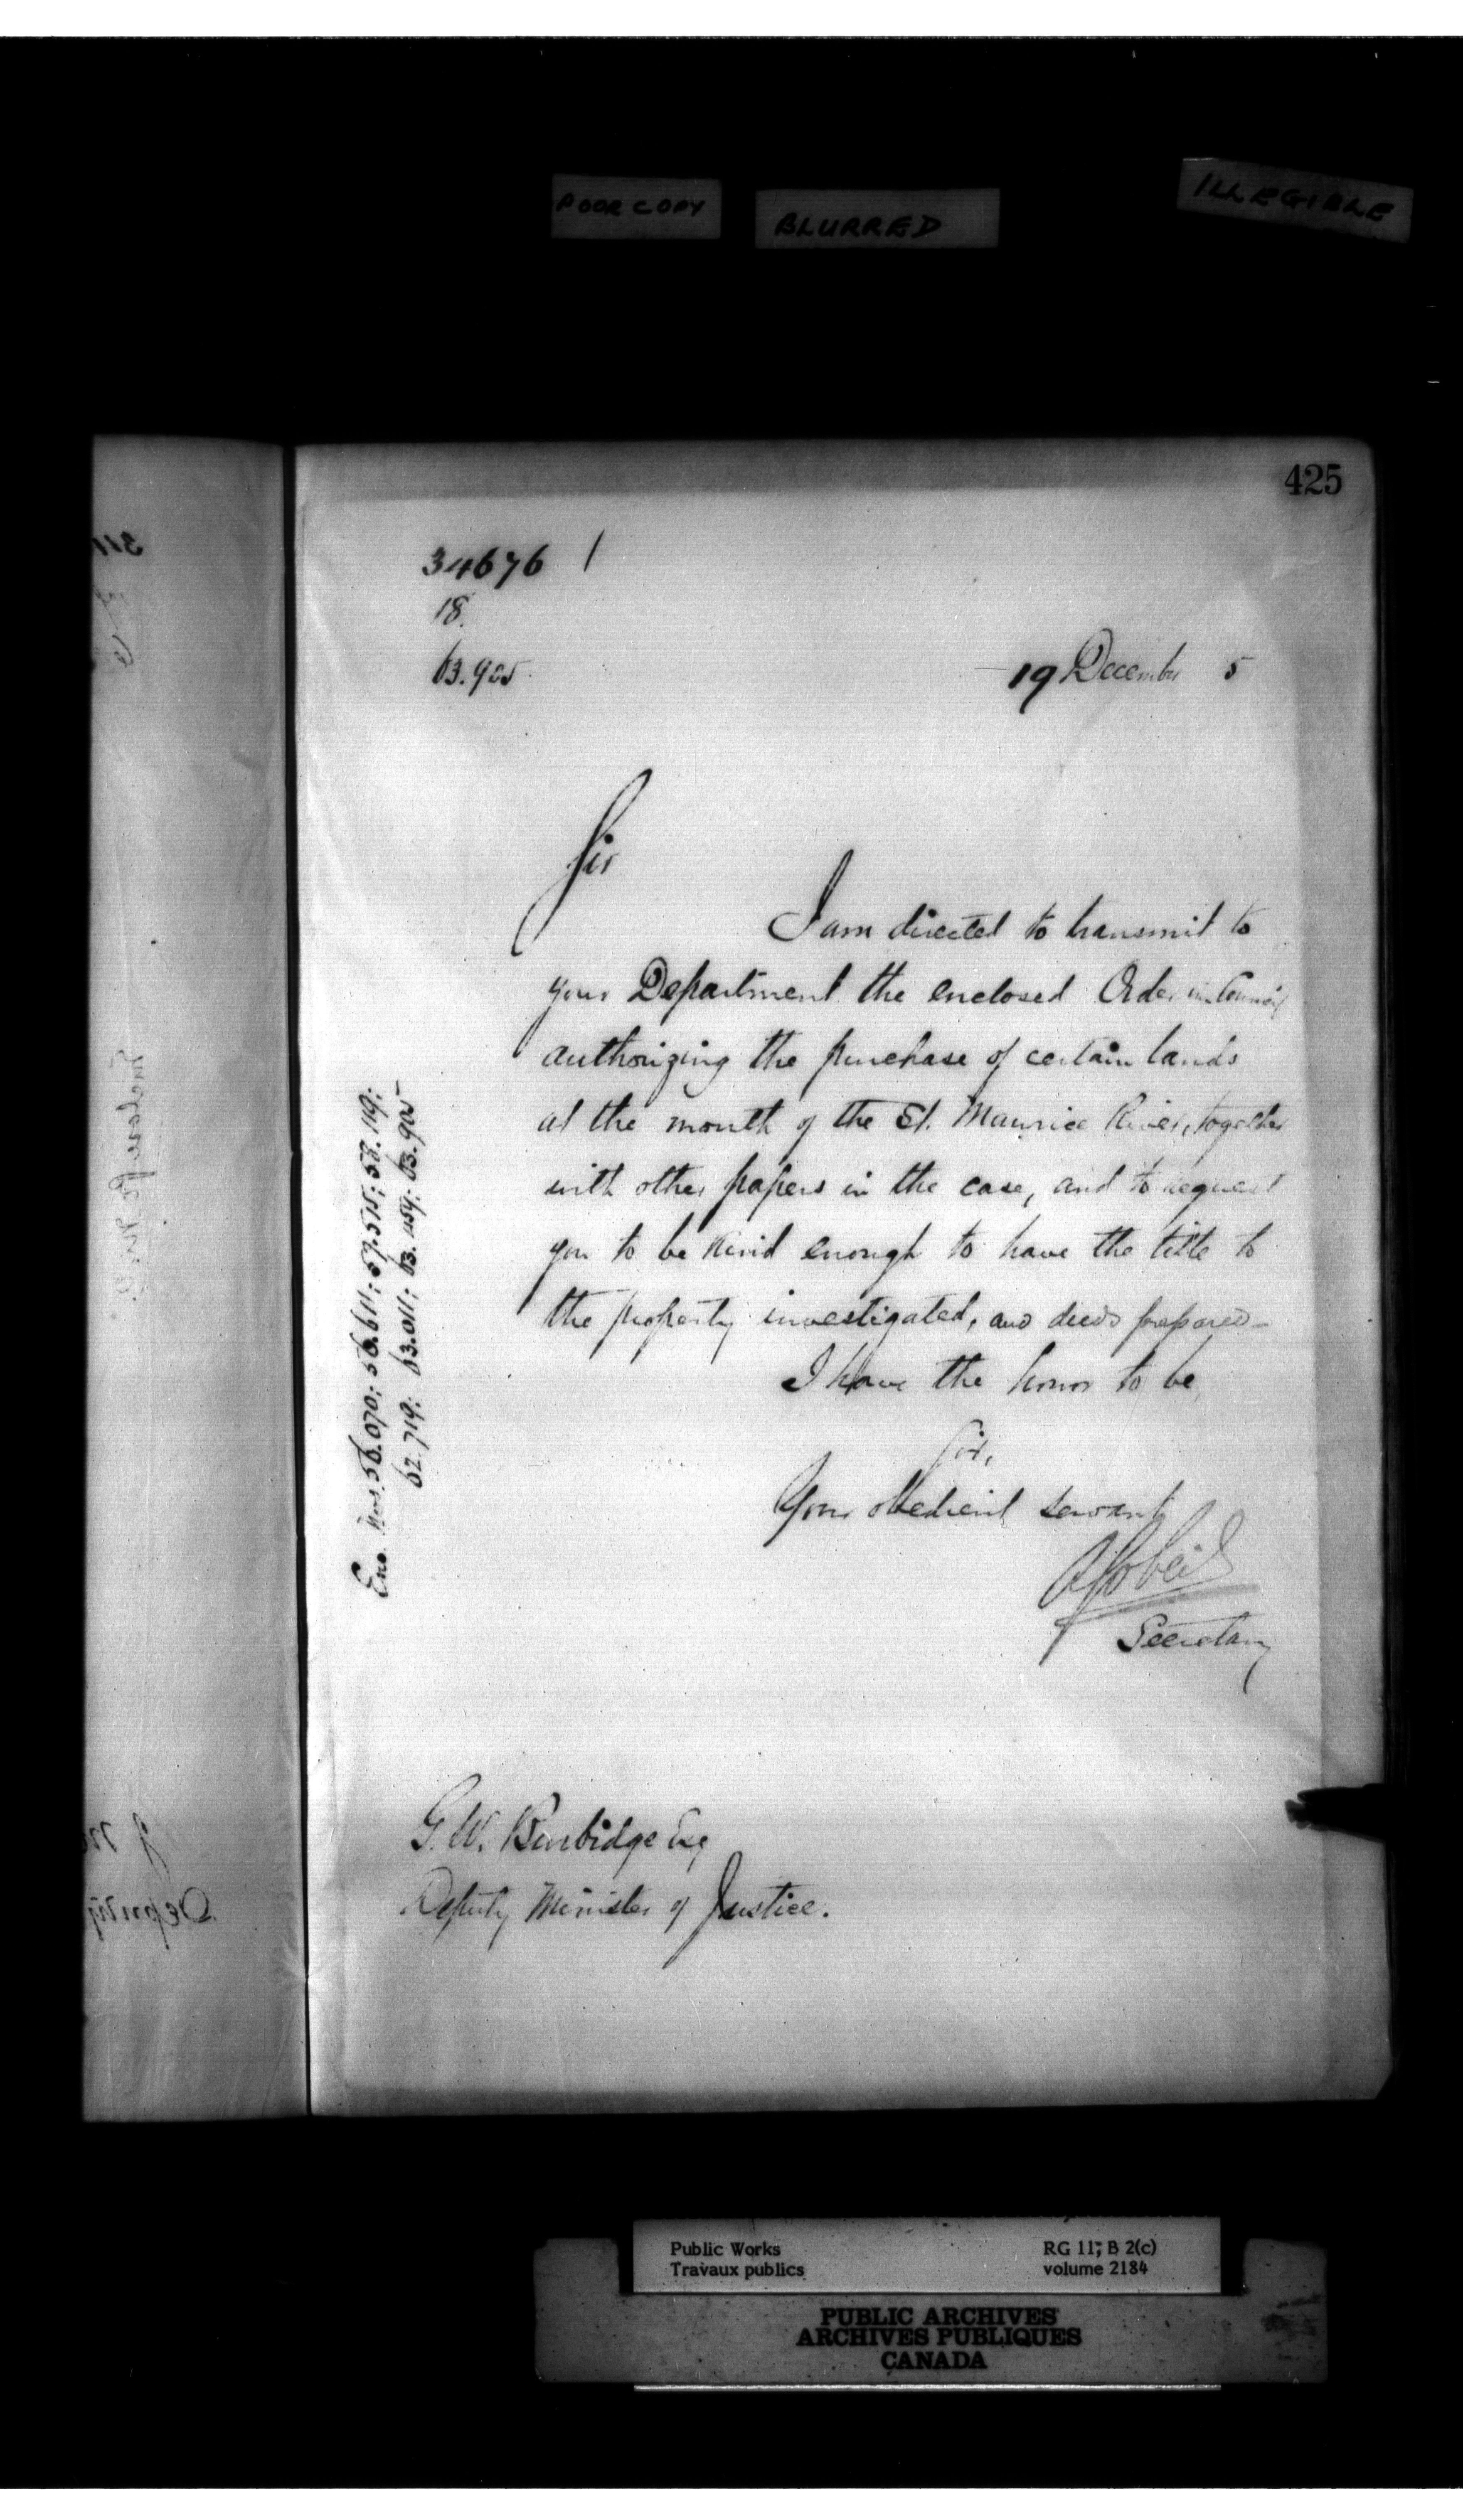 POOR COPY
BLURRED
ILLEGIBLE
425
34676 1
18.
63.905
19 December 5
Sir
I am directed to transmit to
your Department the enclosed Order in Council
authorizing the purchase of certain lands
at the mouth of the St. Maurice River, together
with other papers in the case, and to request
you to be kind enough to have the title to
the property investigated, and deeds prepared—
I have the honor to be,
Sir,
Your obedient servant
Secretary
Enc. Nos. 56.070; 56.611; 57.515; 58.119;
62.719; 63.011; 63.459; 63.905
G. W. Burbidge Esq
Deputy Minister of Justice.
Public Works
Travaux publics
RG 11, B 2(c)
volume 2184
PUBLIC ARCHIVES
ARCHIVES PUBLIQUES
CANADA